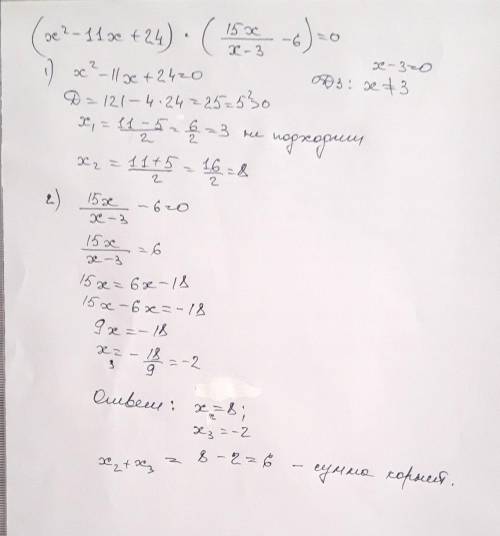 (x² - 11x + 24) · (15x/(x-3) - 6) = 0
x - 3 = 0
ОДЗ: x ≠ 3
1) x² - 11x + 24 = 0
D = 121 - 4·24 = 25 = 5² > 0
x₁ = (11-5)/2 = 6/2 = 3 не подходит
x₂ = (11+5)/2 = 16/2 = 8
2) 15x/(x-3) - 6 = 0
15x/(x-3) = 6
15x = 6x - 18
15x - 6x = -18
9x = -18
x₃ = -18/9 = -2
Ответ: x₂ = 8;
x₃ = -2
x₂ + x₃ = 8 - 2 = 6 - сумма корней.